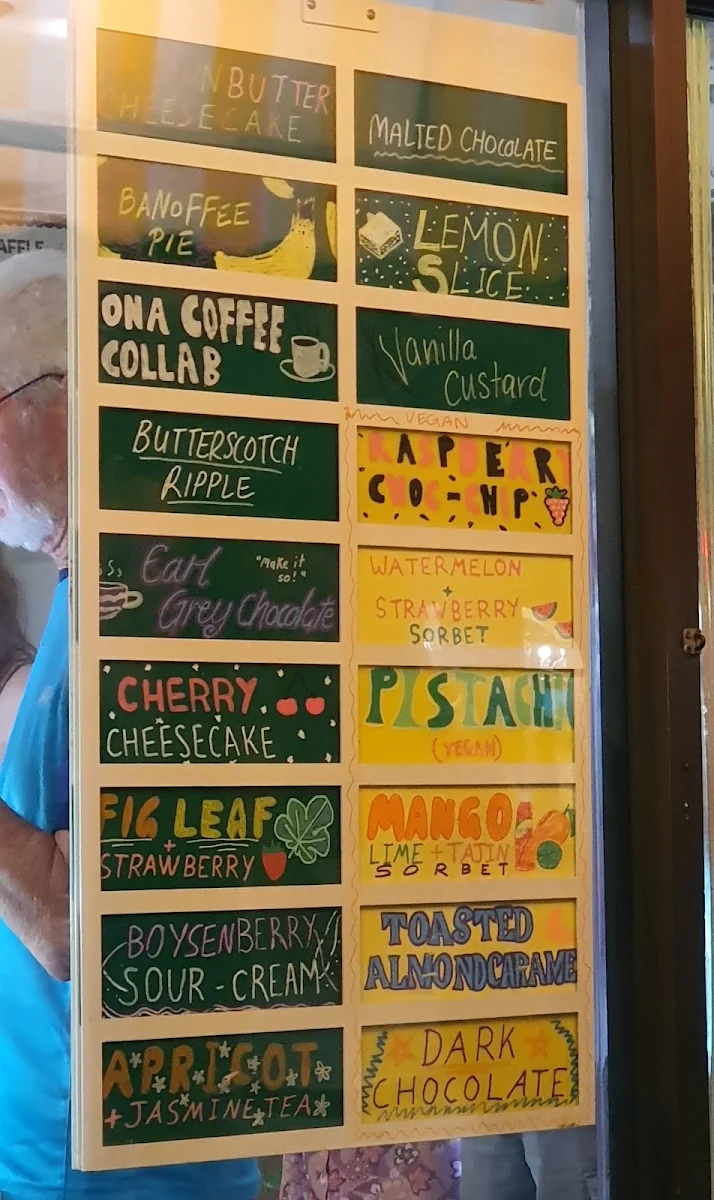 BUTTER
CHEESECAKE
BANOFFEE
PIE
ONA COFFEE
COLLAB
BUTTERSCOTCH
RIPPLE
Earl
Grey Chocolate
"Make it
so!"
CHERRY
CHEESECAKE
FIG LEAF
+
STRAWBERRY
BOYSENBERRY
SOUR-CREAM
APRICOT
+ JASMINE TEA
MALTED CHOCOLATE
LEMON
SLICE
Vanilla
Custard
VEGAN
RASPBERRY
CHOC-CHIP
WATERMELON
+
STRAWBERRY
SORBET
PISTACHI
(VEGAN)
MANGO
LIME + TAJIN
SORBET
TOASTED
ALMONDCARAME
DARK
CHOCOLATE